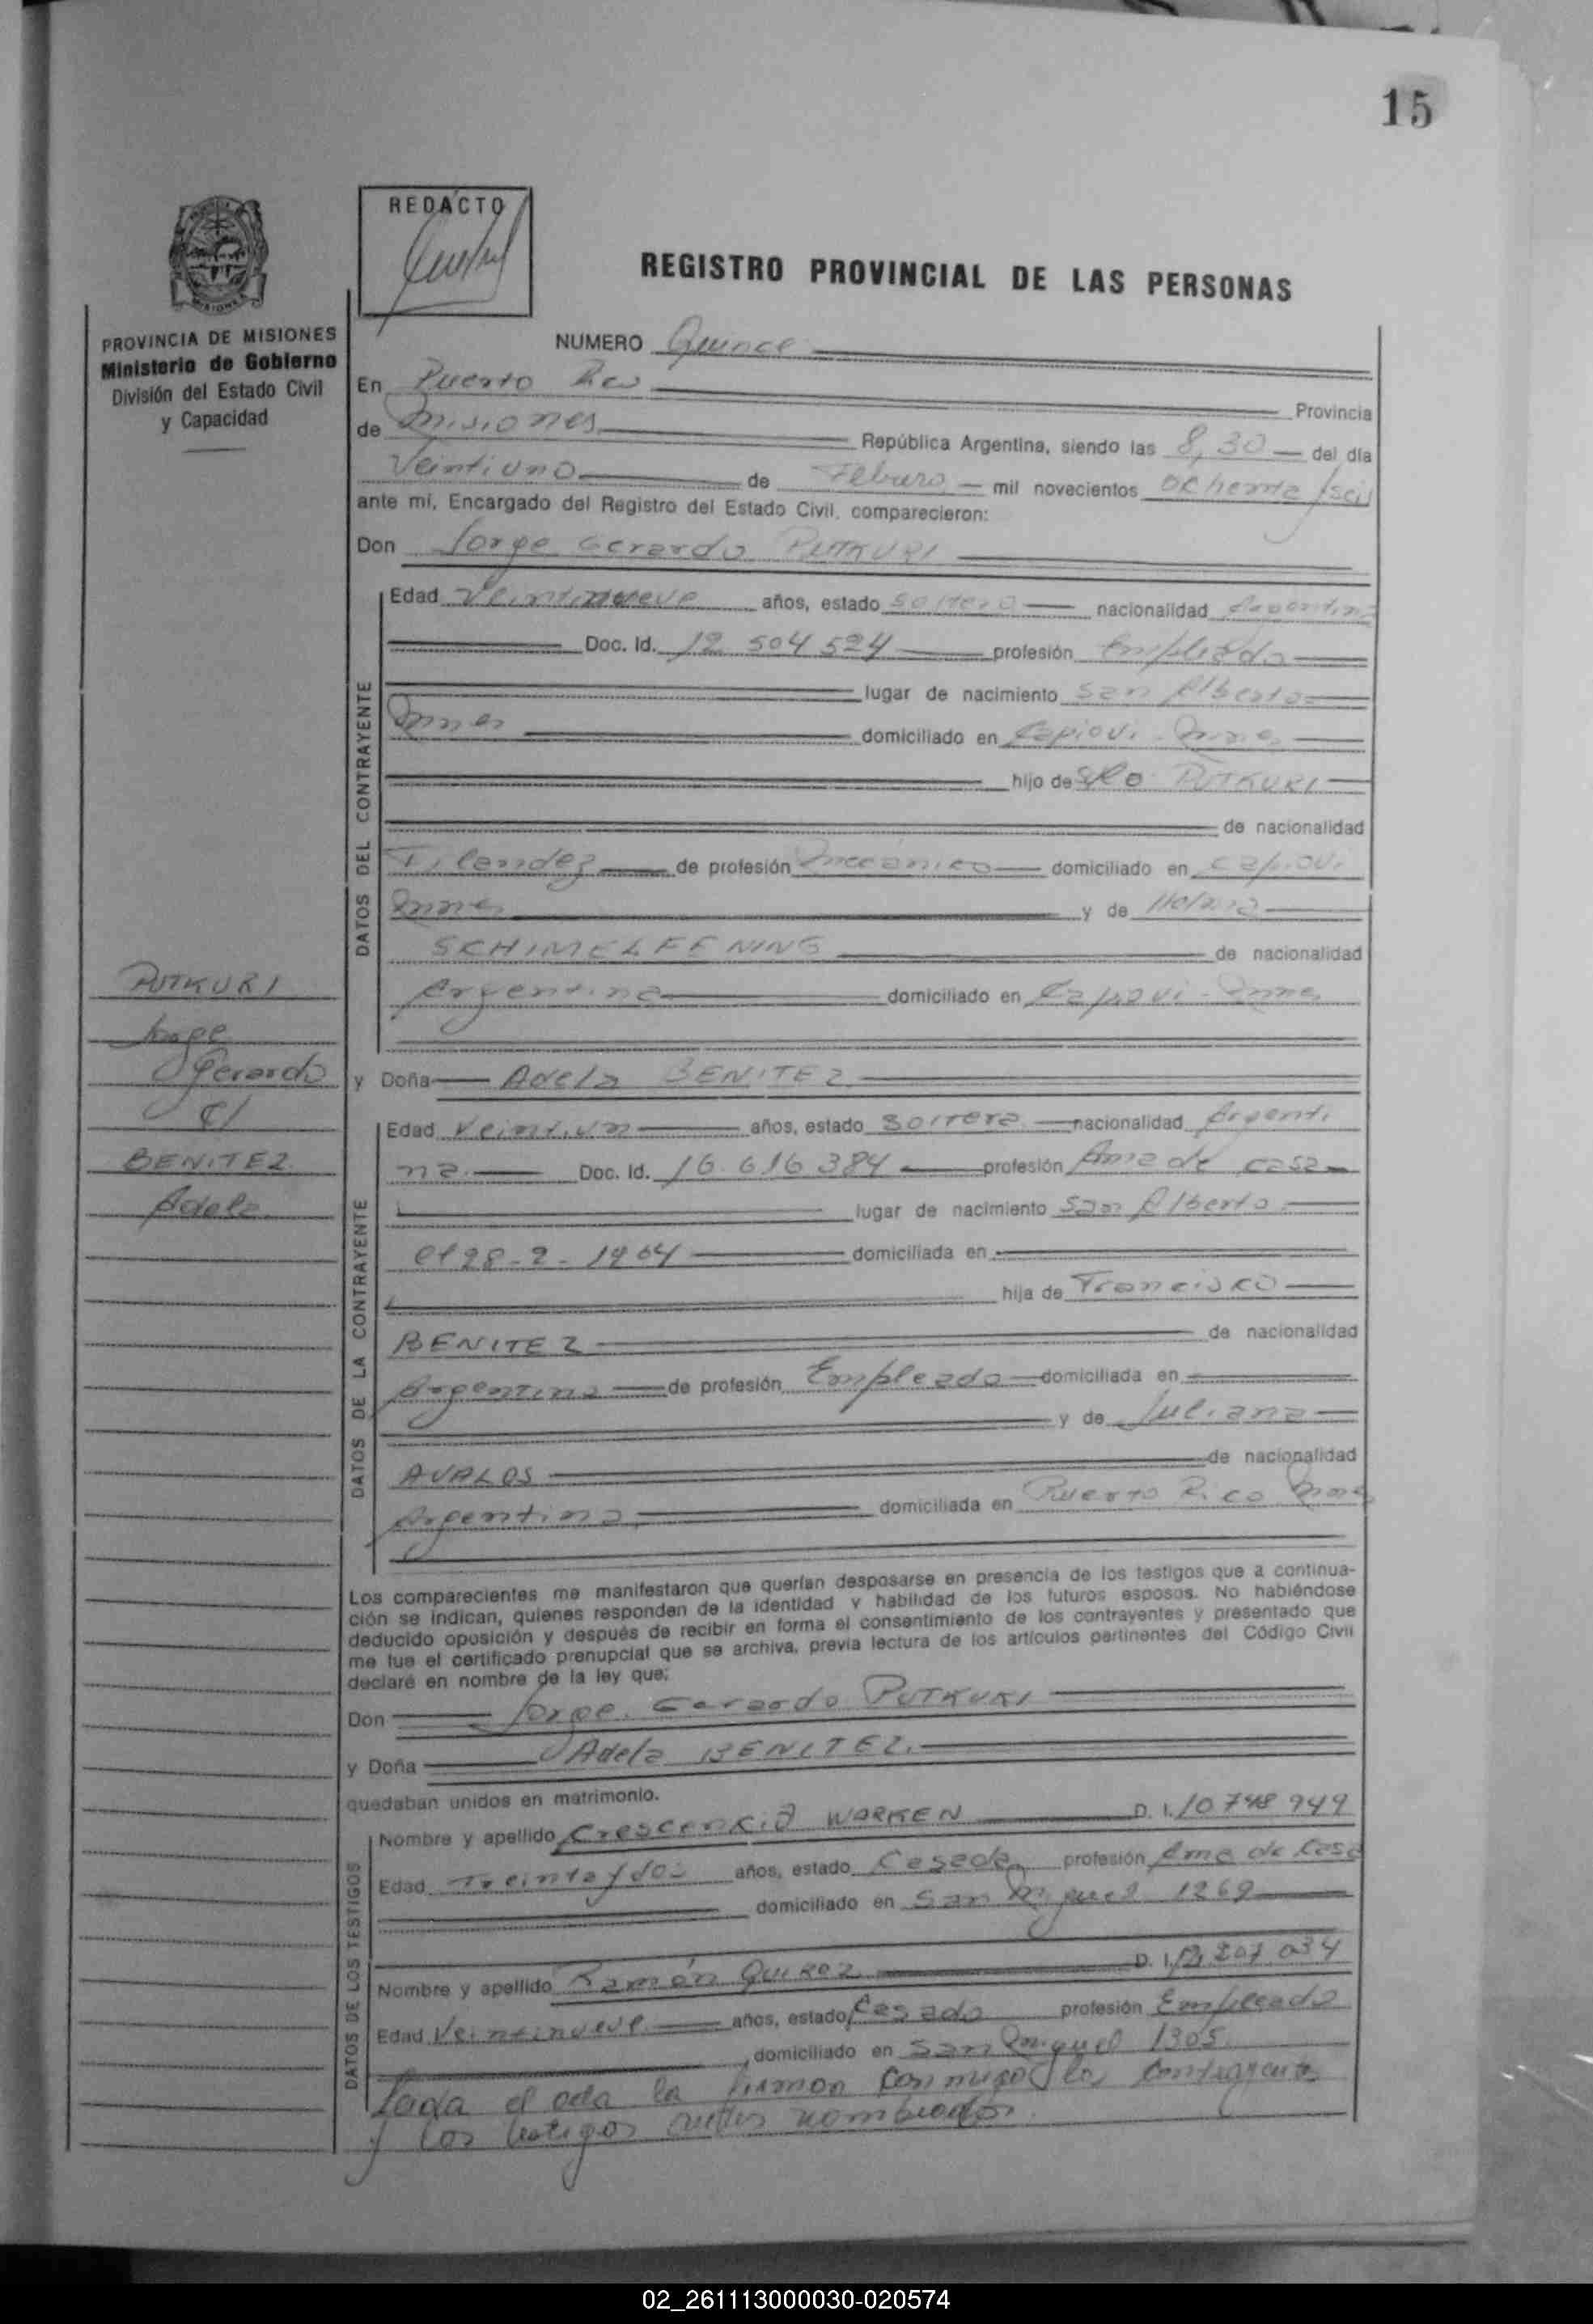 15
REDACTO
REGISTRO PROVINCIAL DE LAS PERSONAS
MISIONES
PROVINCIA DE MISIONES
Ministerio de Gobierno
División del Estado Civil
y Capacidad
NUMERO Quince
En Puerto Rico Provincia
de Misiones República Argentina, siendo las 8,30 del día
Veintiuno de Febrero mil novecientos ochenta y seis
ante mí, Encargado del Registro del Estado Civil, comparecieron:
Don Jorge Gerardo PUTKURI
DATOS DEL CONTRAYENTE
Edad Veintinueve años, estado soltero nacionalidad Argentina
Doc. Id. 12 504 524 profesión Empleado
lugar de nacimiento San Alberto
Mnes domiciliado en Capiovi - Mnes
hijo de PUTKURI
de nacionalidad
de profesión Mecánico domiciliado en Capiovi
Mnes y de
SCHIMELFENING de nacionalidad
Argentina domiciliado en Capiovi - Mnes
PUTKURI
Jorge
Gerardo
c/
BENITEZ
Adela
y Doña Adela BENITEZ
DATOS DE LA CONTRAYENTE
Edad Veintiun años, estado soltera nacionalidad Argenti
na Doc. Id. 16.616.384 profesión Ama de casa
lugar de nacimiento San Alberto
el 28-2-1964 domiciliada en
hija de Francisco
BENITEZ de nacionalidad
Argentina de profesión Empleado domiciliada en
y de Juliana
AVALOS de nacionalidad
Argentina domiciliada en Puerto Rico Mnes
Los comparecientes me manifestaron que querían desposarse en presencia de los testigos que a continua-
ción se indican, quienes responden de la identidad y habilidad de los futuros esposos. No habiéndose
deducido oposición y después de recibir en forma el consentimiento de los contrayentes y presentado que
me fue el certificado prenupcial que se archiva, previa lectura de los artículos pertinentes del Código Civil
declaré en nombre de la ley que:
Don Jorge Gerardo PUTKURI
y Doña Adela BENITEZ.
quedaban unidos en matrimonio.
DATOS DE LOS TESTIGOS
Nombre y apellido WARKEN D. I. 10 748 949
Edad Treinta y dos años, estado Casada profesión Ama de casa
domiciliado en San Miguel 1269
Nombre y apellido Ramón QUIROZ D. I.
Edad Veintinueve años, estado Casado profesión Empleado
domiciliado en San Miguel 1305
Leida el acta la firman conmigo los contrayentes
y los testigos antes nombrados.
02_261113000030-020574